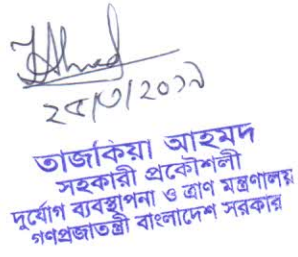 Ahmed
২৫/৩/২০১৯
তাজকিয়া আহমদ
সহকারী প্রকৌশলী
দুর্যোগ ব্যবস্থাপনা ও ত্রাণ মন্ত্রণালয়
গণপ্রজাতন্ত্রী বাংলাদেশ সরকার